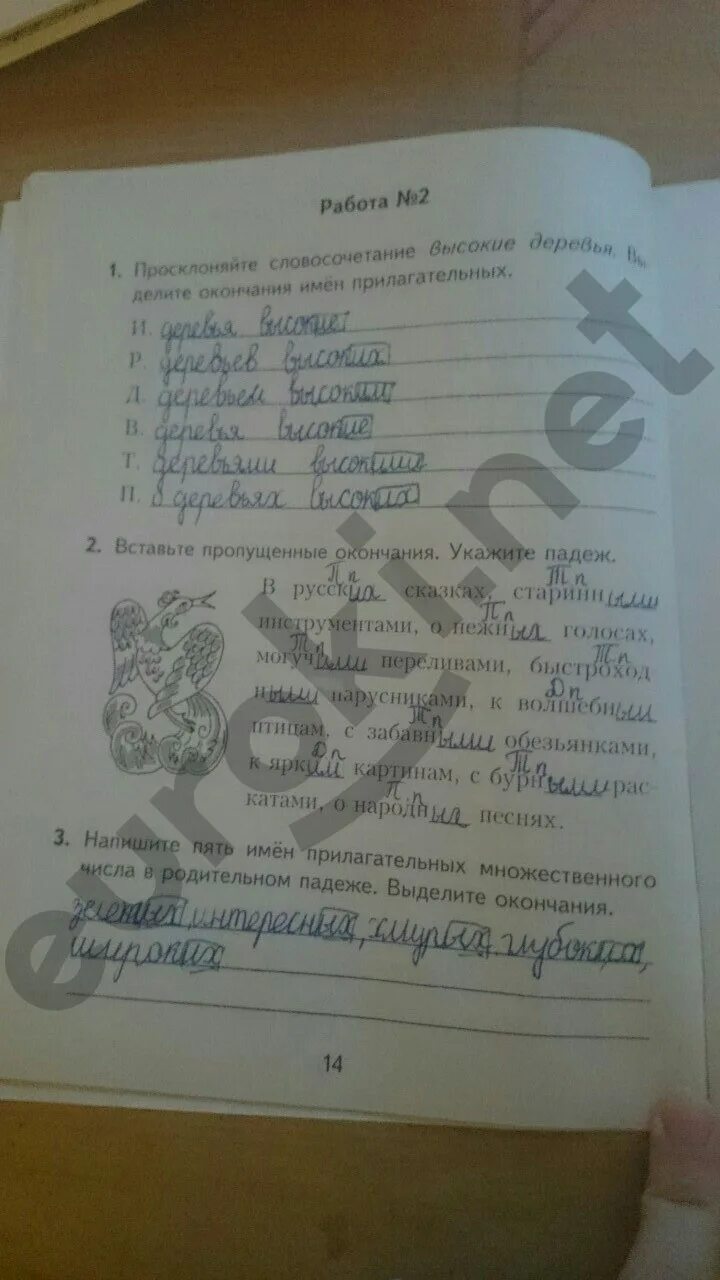 Работа №2
1. Просклоняйте словосочетание высокие деревья. Вы-
делите окончания имён прилагательных.
И. деревья высокие
Р. деревьев высоких
Д. деревьем высоким
В. деревья высокие
Т. деревьями высокими
П. о деревьях высоких
2. Вставьте пропущенные окончания. Укажите падеж.
Пп Тп
В русских сказках, старинными
Пп
инструментами, о нежных голосах,
Тп Тп
могучими переливами, быстроход
Дп
ными парусниками, к волшебным
Тп
птицам, с забавными обезьянками,
Дп Тп
к ярким картинам, с бурными рас-
П.п
катами, о народных песнях.
3. Напишите пять имён прилагательных множественного
числа в родительном падеже. Выделите окончания.
зеленых, интересных, хмурых, глубоких,
широких
14
euroki.net